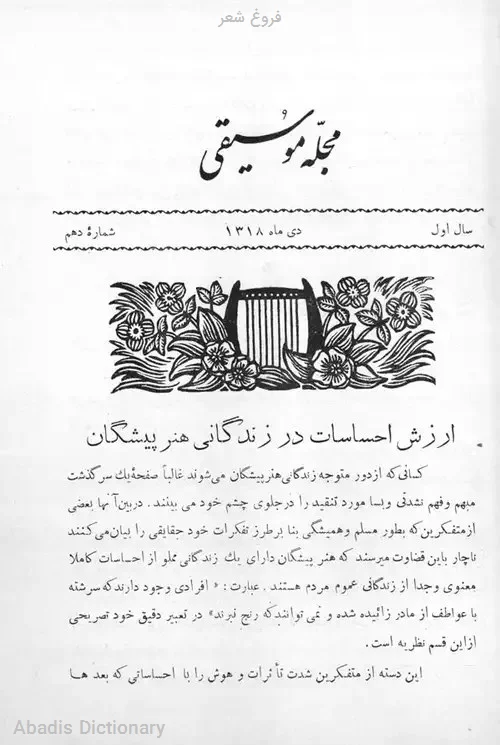 فروغ شعر
مجلّه موسیقی
سال اول دی ماه ۱۳۱۸ شمارهٔ دهم
ارزش احساسات در زندگانی هنرپیشگان
کسانی که از دور متوجه زندگانی هنرپیشگان می شوند غالباً صفحهٔ یك سرگذشت
مبهم و فهم نشدنی و بسا مورد تنقید را در جلوی چشم خود می بینند. در بین آنها بعضی
از متفکرین که بطور مسلم و همیشگی بنا بر طرز تفکرات خود حقایقی را بیان می کنند
ناچار باین قضاوت میرسند که هنرپیشگان دارای یك زندگانی مملو از احساسات کاملا
معنوی و جدا از زندگانی عموم مردم هستند. عبارت: « افرادی وجود دارند که سرشته
با عواطف از مادر زائیده شده و نمی توانند که رنج نبرند» در تعبیر دقیق خود تصریحی
از این قسم نظریه است.
این دسته از متفکرین شدت تأثرات و هوش را با احساساتی که بعد ها
Abadis Dictionary